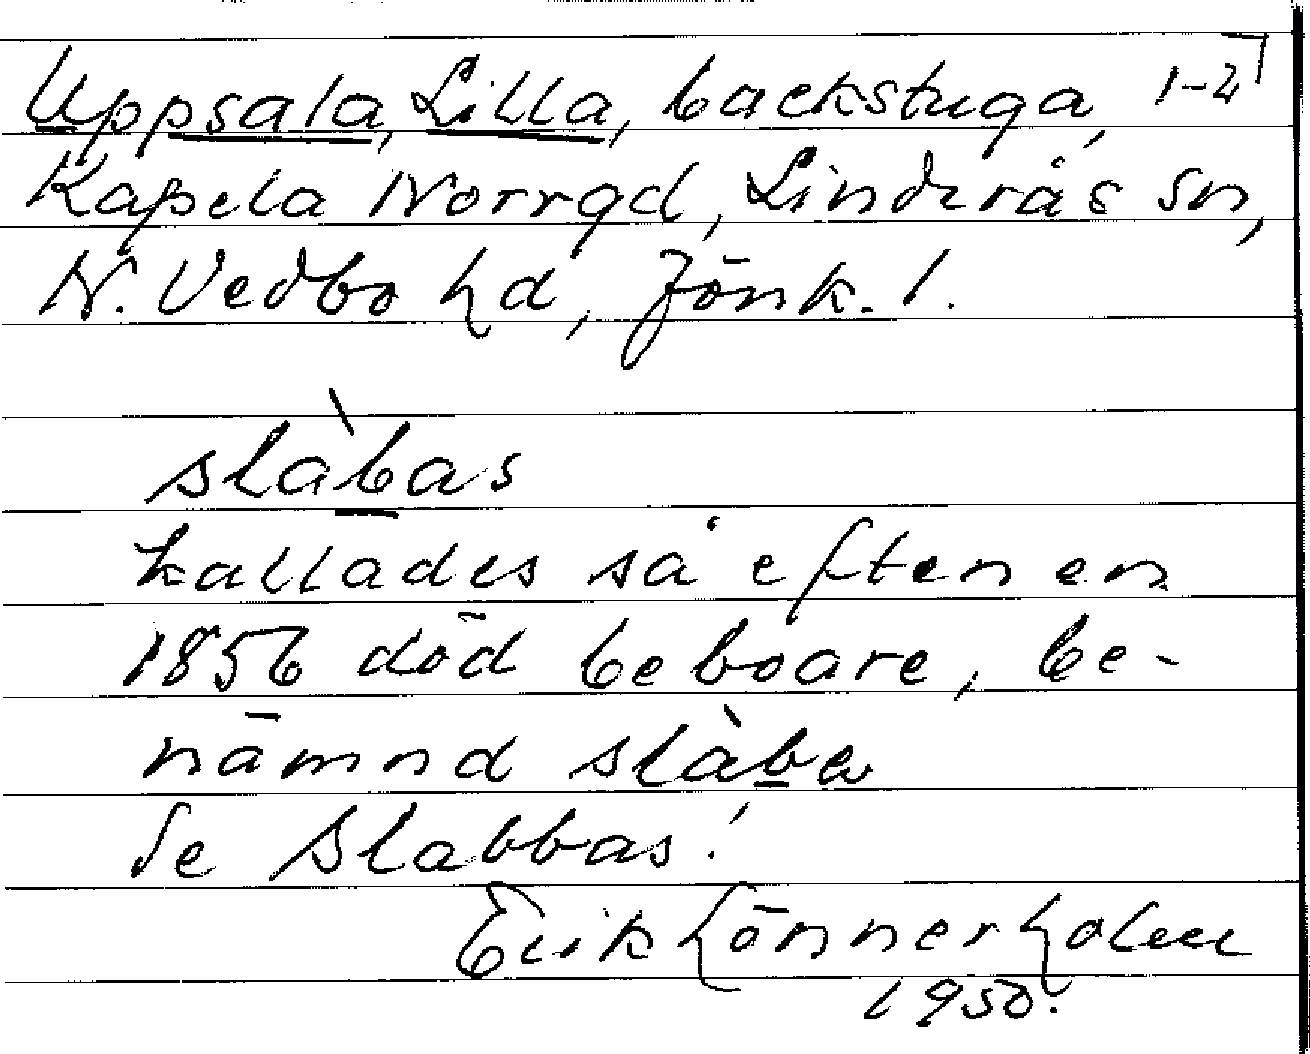 Uppsala, Lilla, backstuga, 1-2
Kapela Norrgd, Linderås sn,
N. Vedbo hd, Jönk. l.
slàbas
kallades så efter en
1856 död beboare, be-
nämnd slàba
Se Slabbas!
Erik Lönnerholm
1950.